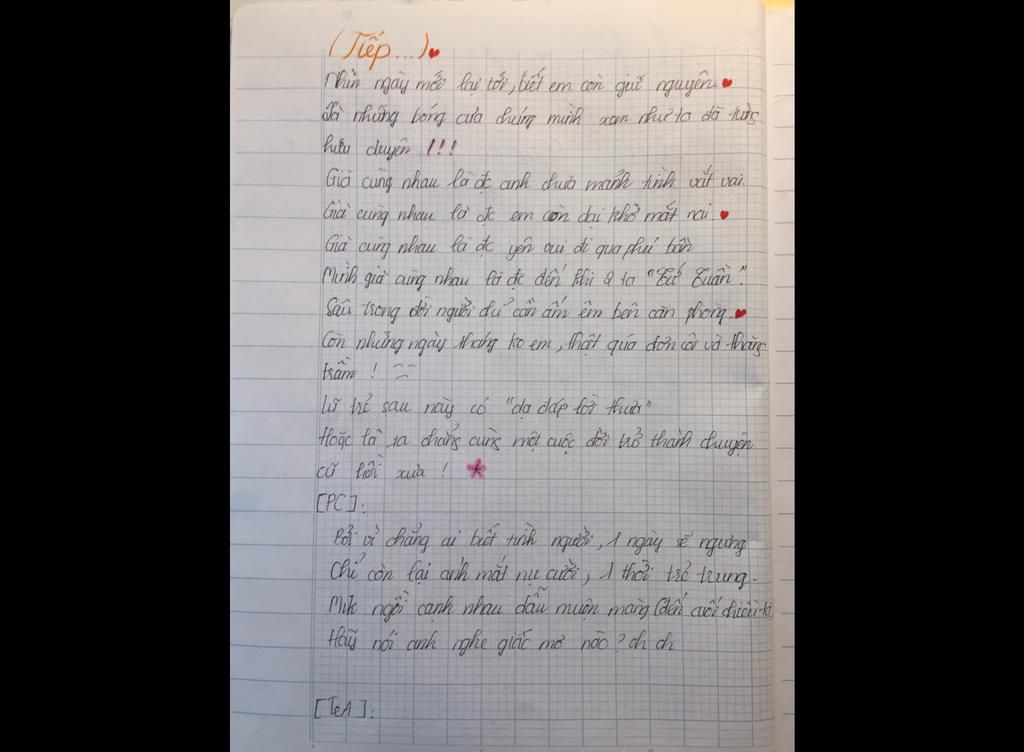 (Tiếp...)
Nhìn ngày mới lại tới, biết em còn giữ nguyên.
Là những bóng của chúng mình xem như ta đã từng
hữu duyên !!!
Già cùng nhau là đc anh chưa mảnh tình vắt vai.
Già cùng nhau là đc em còn dại khờ mắt nai.
Già cùng nhau là đc yên vui đi qua phút bần
Mình già cùng nhau là đc đến khi 2 ta "Tứ Tuần".
Sâu trong đời người chỉ cần ấm êm bên căn phòng.
Còn những ngày tháng ko em, thật quá đơn côi và thăng
trầm !
Lũ trẻ sau này có "dạ đáp lời thưa"
Hoặc là ta chẳng cùng một cuộc đời trở thành chuyện
cũ hồi xưa !
[PC]:
Bởi vì chẳng ai biết tình người, 1 ngày sẽ ngưng
Chỉ còn lại ánh mắt nụ cười, 1 thời trẻ trung.
Mik ngồi cạnh nhau dẫu muộn màng (đến cuối chiều tà)
Hãy nói anh nghe giấc mơ nào? oh oh
[TeA]: